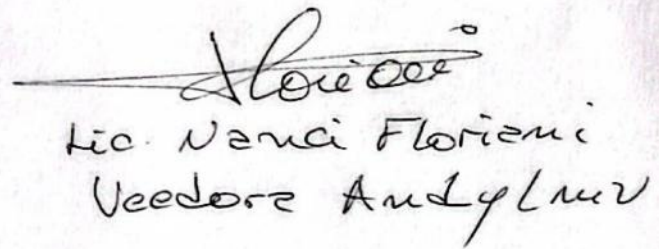 Floriani
Lic. Nanci Floriani
Veedora